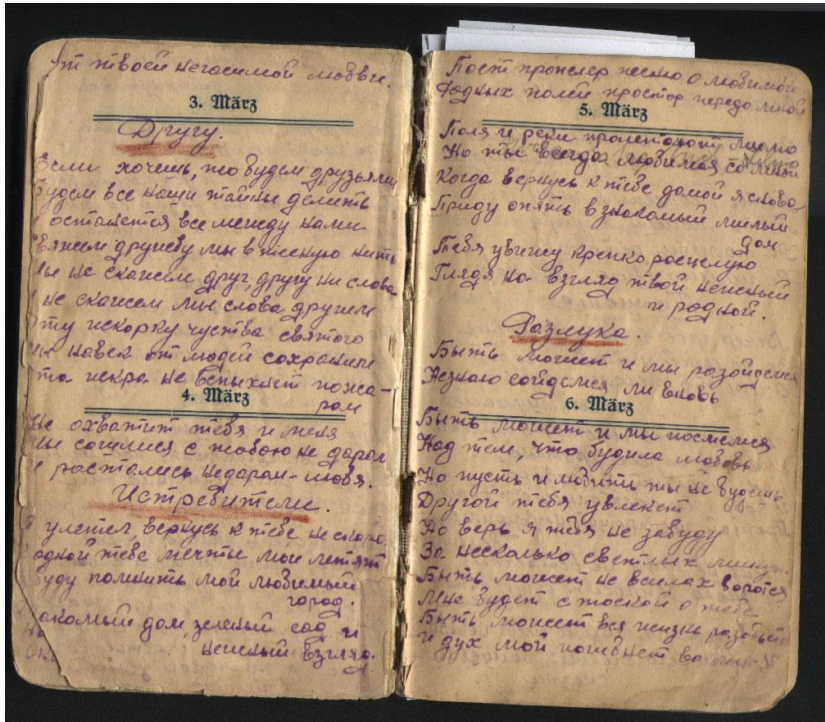 от твоей негасимой любви.
3. März
Другу.
Если хочешь, то будем друзьями
Будем все наши тайны делить
И останется все между нами
Свяжем дружбу мы в тесную нить
Мы не скажем друг, другу ни слова
И не скажем мы слова другим
Эту искорку чуства святого
Мы навек от людей сохраним
Эта искра не вспыхнет пожа-
ром
4. März
Не охватит тебя и меня
Мы сошлися с тобою не даром
И растались недаром - любя.
Истребители.
Я улетел, вернусь к тебе не скоро
одной тебе мечты мои летят
Буду помнить мой любимый
город.
Знакомый дом, зеленый сад и
нежный взгляд.
Поет пропелер песню о любимой
Родных полей простор передо мной
5. März
Поля и реки пролетают мимо
Но ты всегда любимая со мной
Когда вернусь к тебе домой я снова
Приду опять в знакомый милый
дом
Тебя увижу крепко росцелую
Глядя на взгляд твой нежный
и родной.
Разлука.
Быть может и мы разойдемся
Незнаю сойдемся ли вновь
6. März
Быть может и мы посмеемся
Над тем, что будила любовь
Но пусть и любить ты не будешь
Другой тебя увлекет
Но верь я тебя не забуду
За несколько светлых минут
Быть может не в силах
Мне будет с тоской о тебе
Быть может вся жизнь
и дух мой погибнет